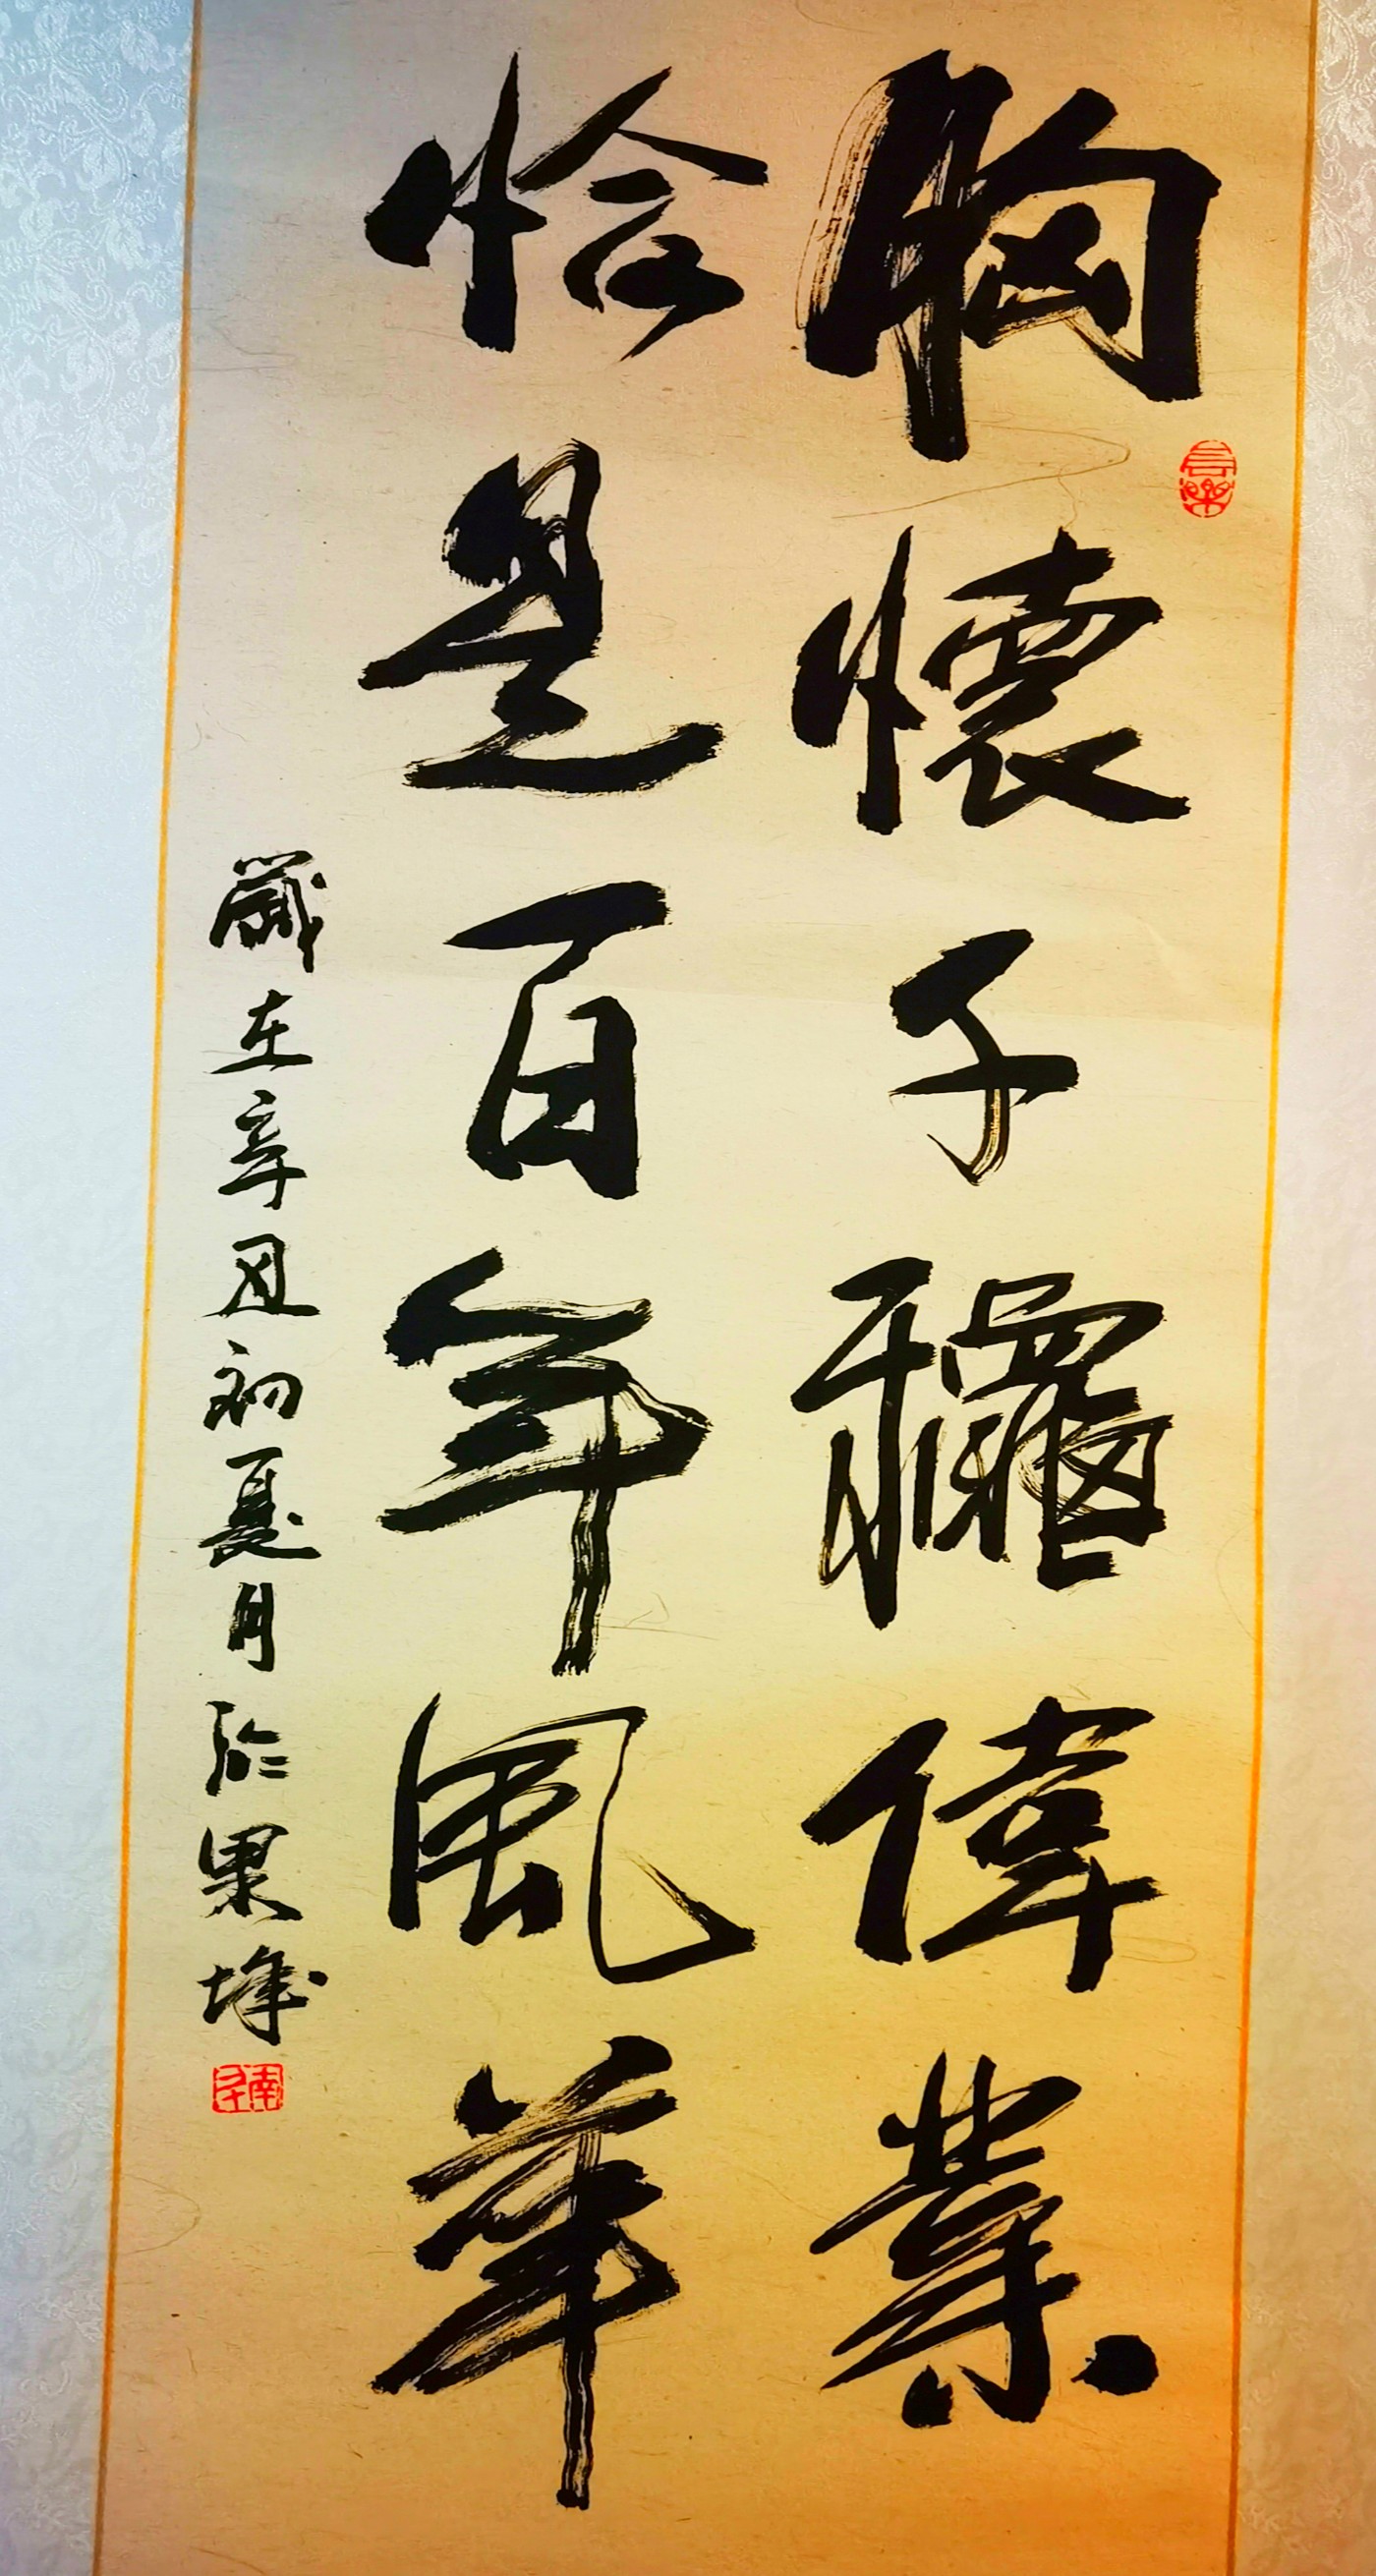 胸懷千龝偉業
恰是百年風華
歲在辛丑初夏月於果